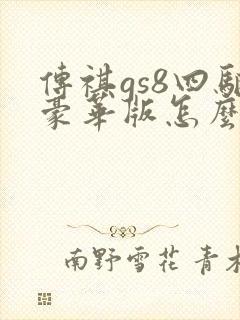 傳祺gs8四驅
豪華版怎麼
南野雪花 青木